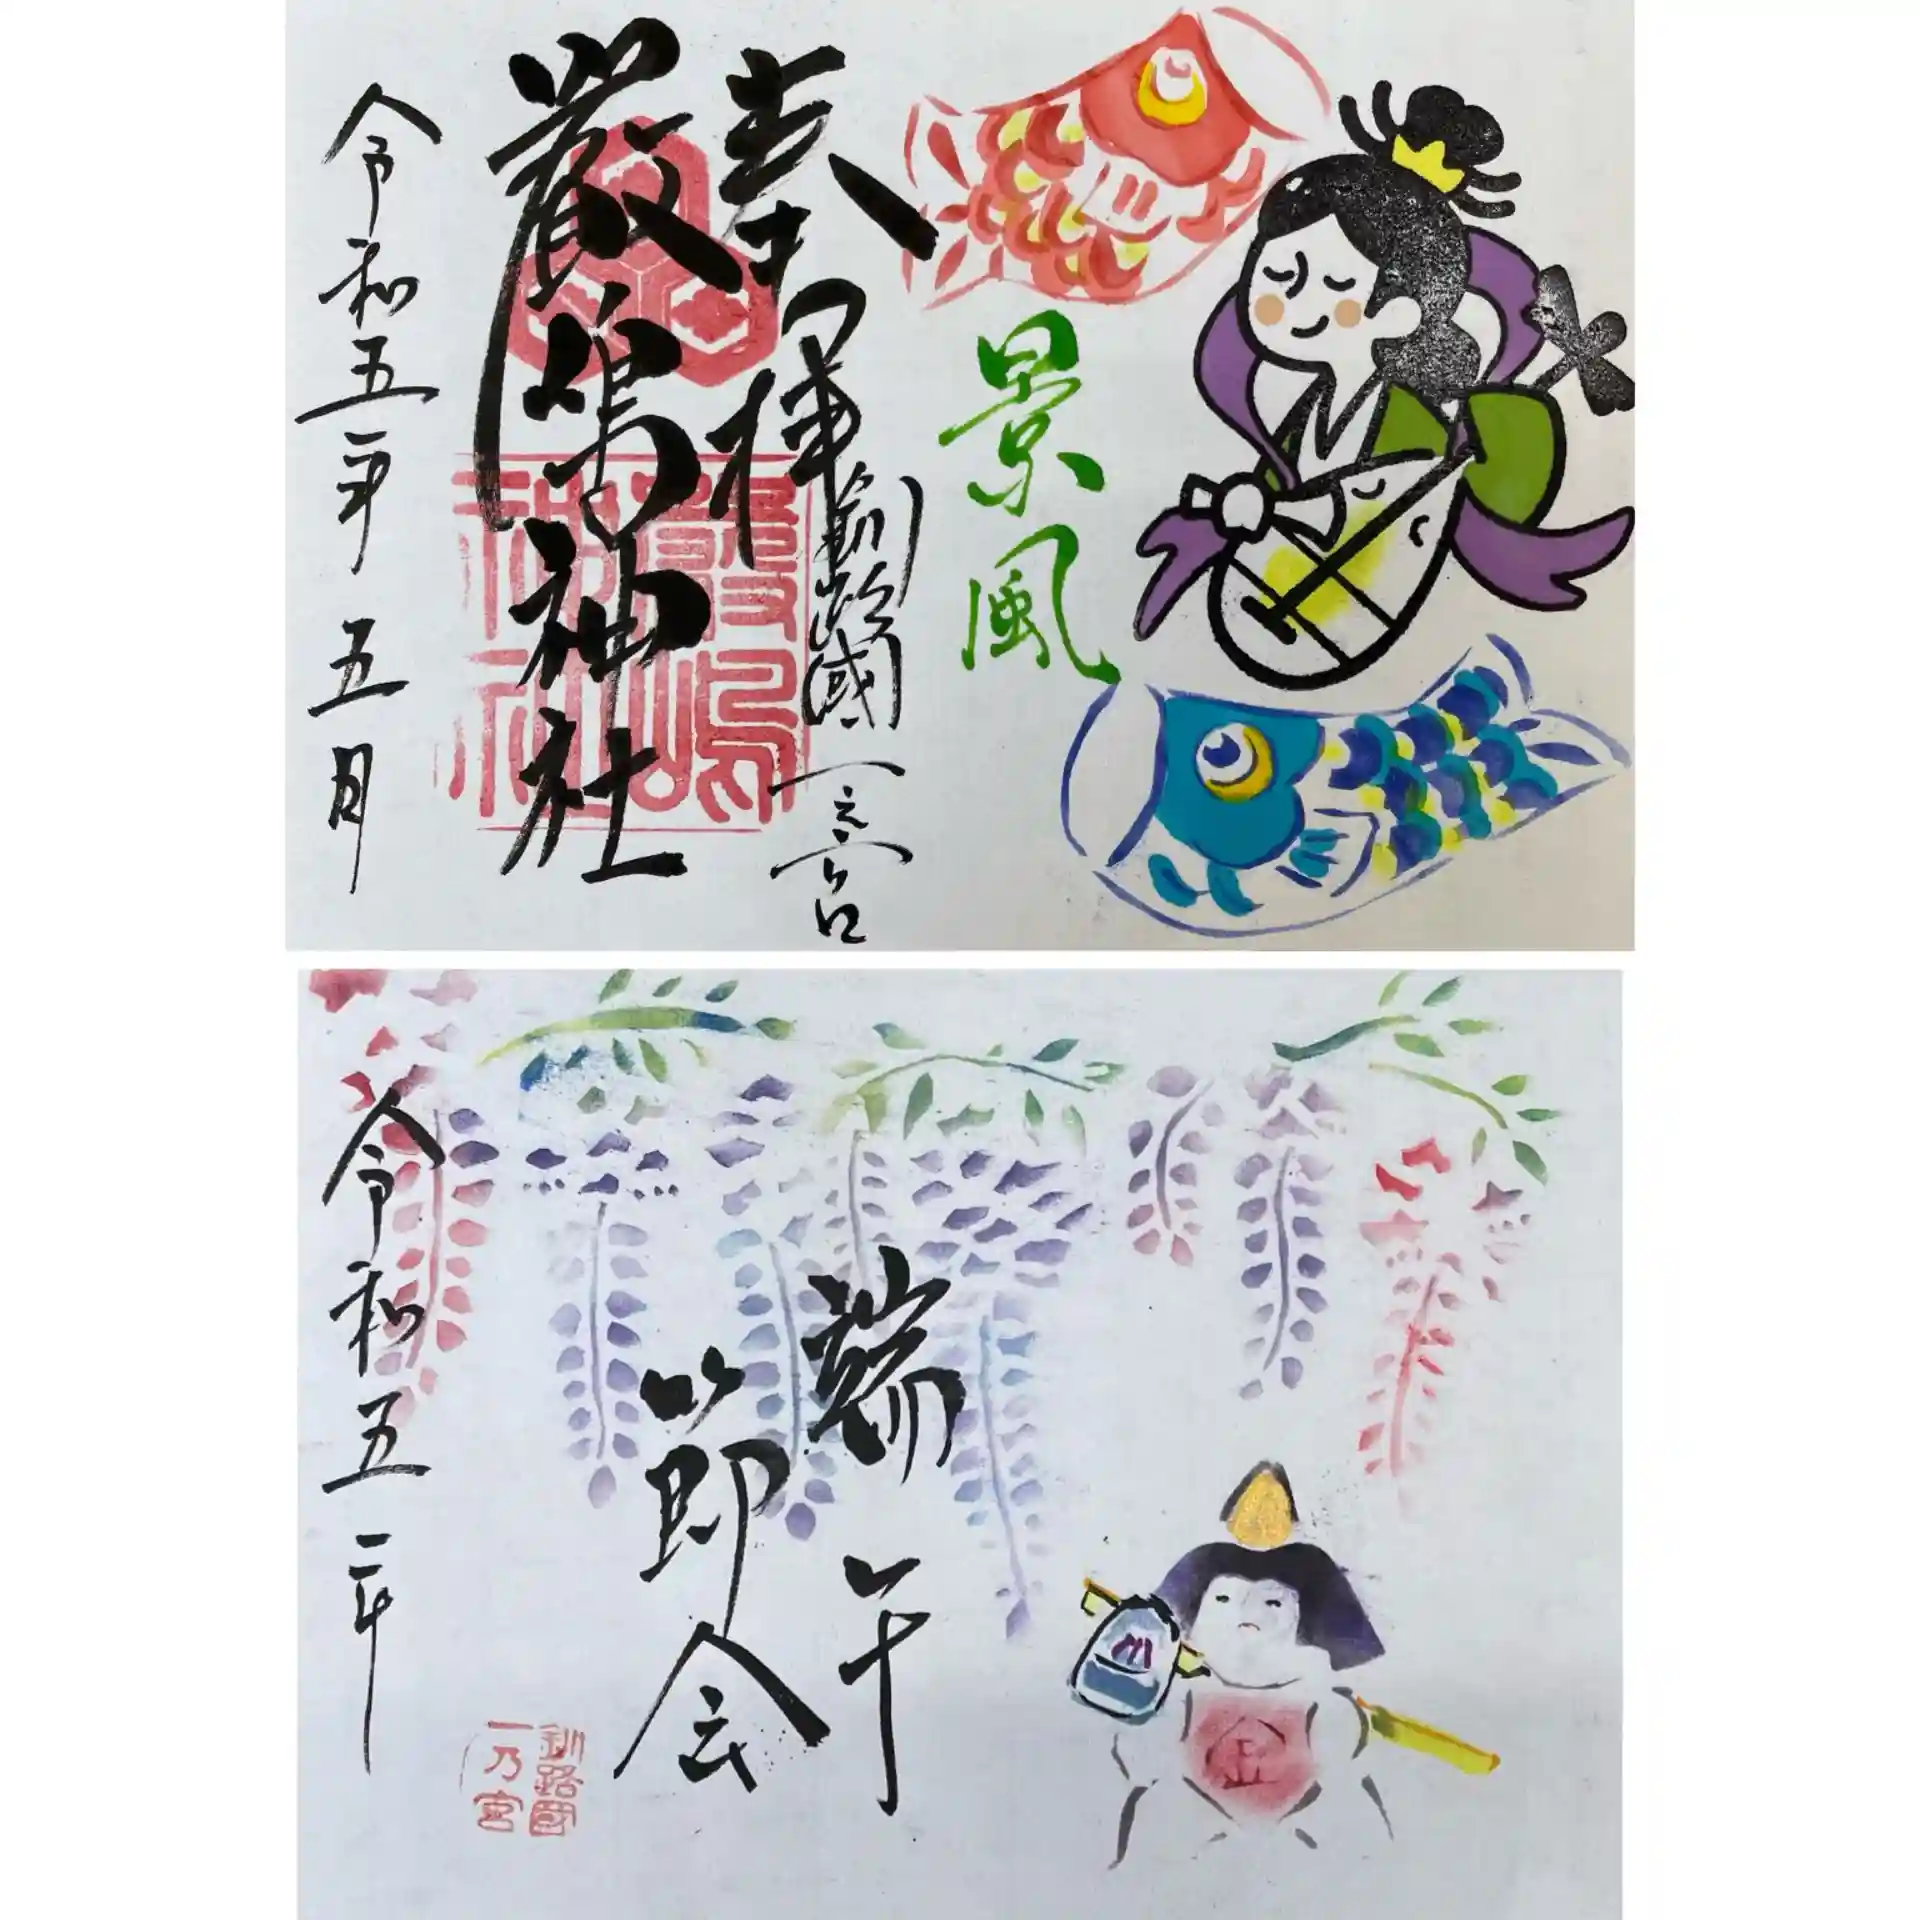 景風
奉拝
釧路國一之宮
厳嶋神社
厳嶋神社
令和五年五月
端午
節会
令和五年
釧路國
一乃宮
金